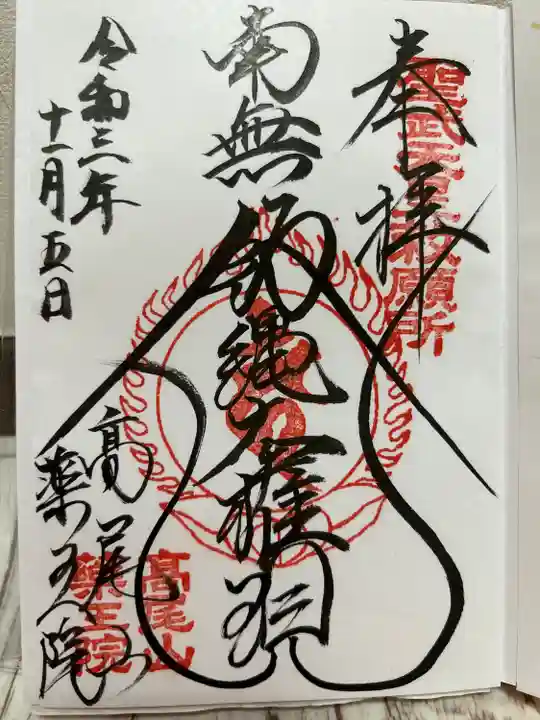 奉拝
聖武天皇敕願所
南無飯縄大権現
令和三年
十一月五日
高尾山
薬王院
髙尾山
藥王院